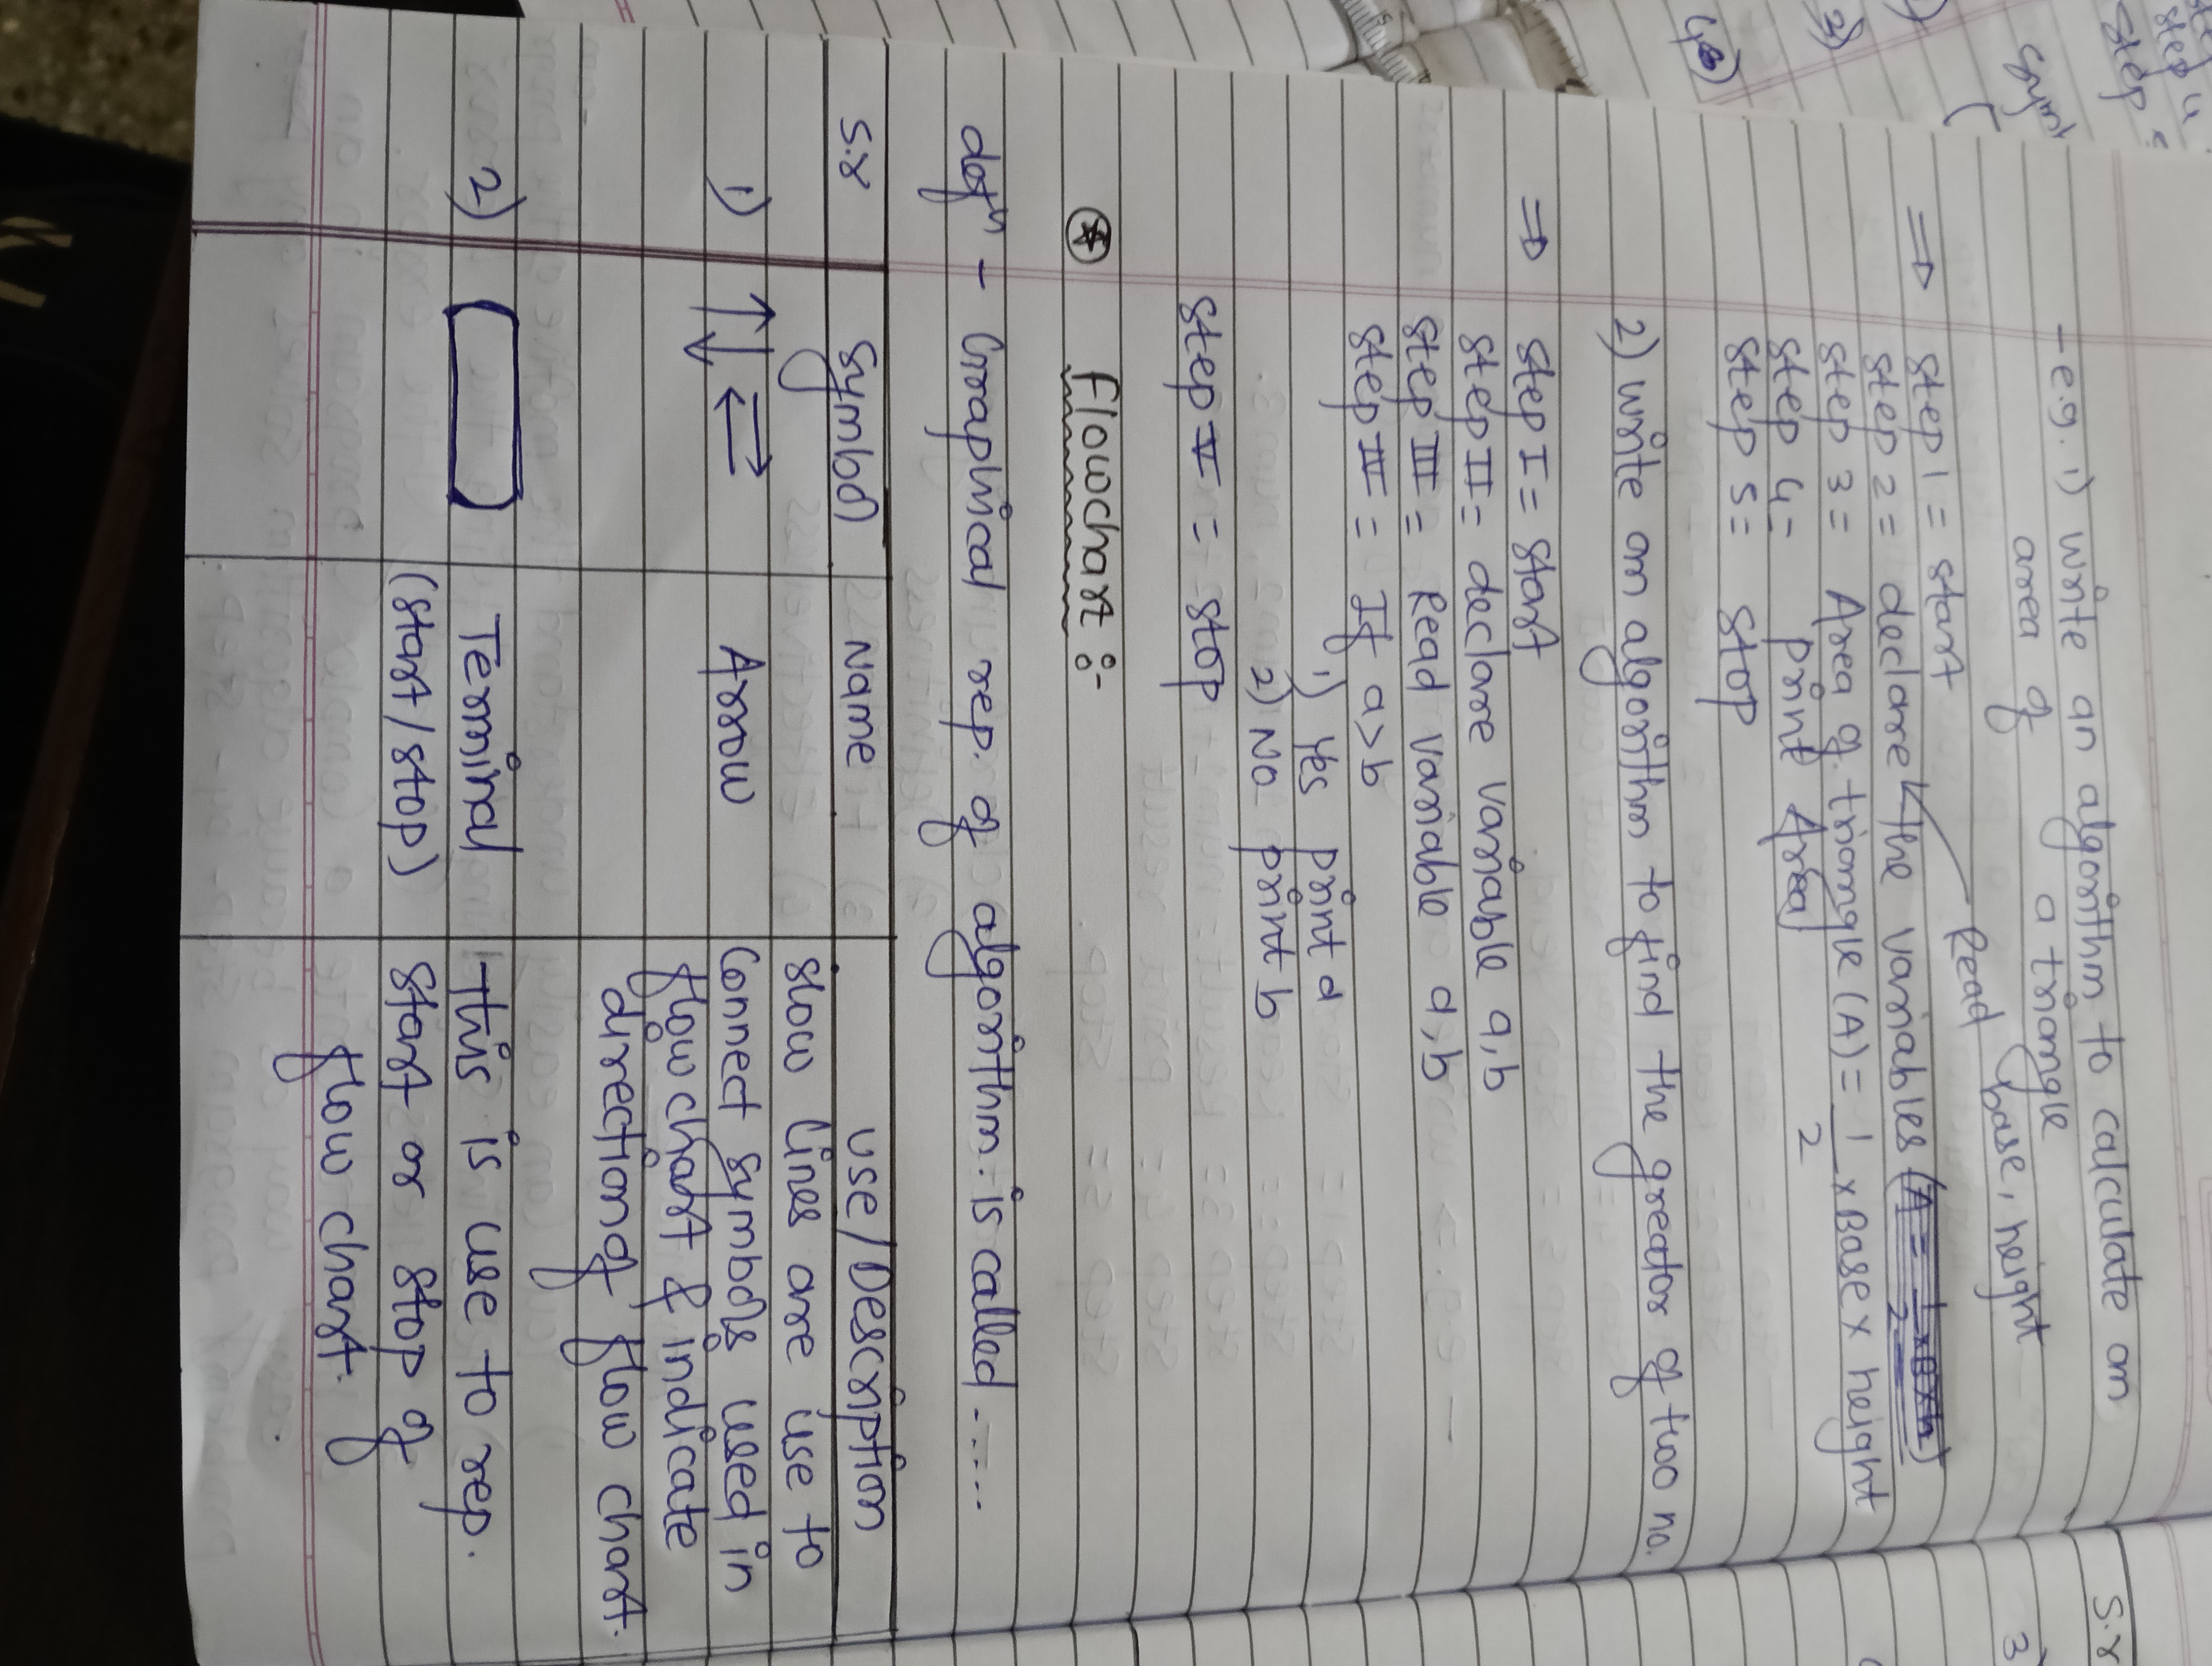 - e.g. 1) write an algorithm to calculate an
area of a triangle
Read base, height
⇒ step 1 = start
step 2 = declare the variables
step 3 = Area of triangle (A) = 1/2 × Base × height
step 4 = print Area
step 5 = stop
2) write an algorithm to find the greator of two no.
⇒ step I = start
step II = declare variable a, b
step III = Read variable a, b
step III = If a>b
1) Yes print a
2) No print b
step V = stop
Flowchart :-
defn - Graphical rep. of algorithm is called .....
S.r Symbol Name use/Description
1) ↑↓ ⇄ Arrow slow lines are use to
connect symbols used in
flow chart & indicate
direction of flow chart.
2) Terminal this is use to rep.
(start/stop) start or stop of
flow chart.
S.r
3)
3)
step